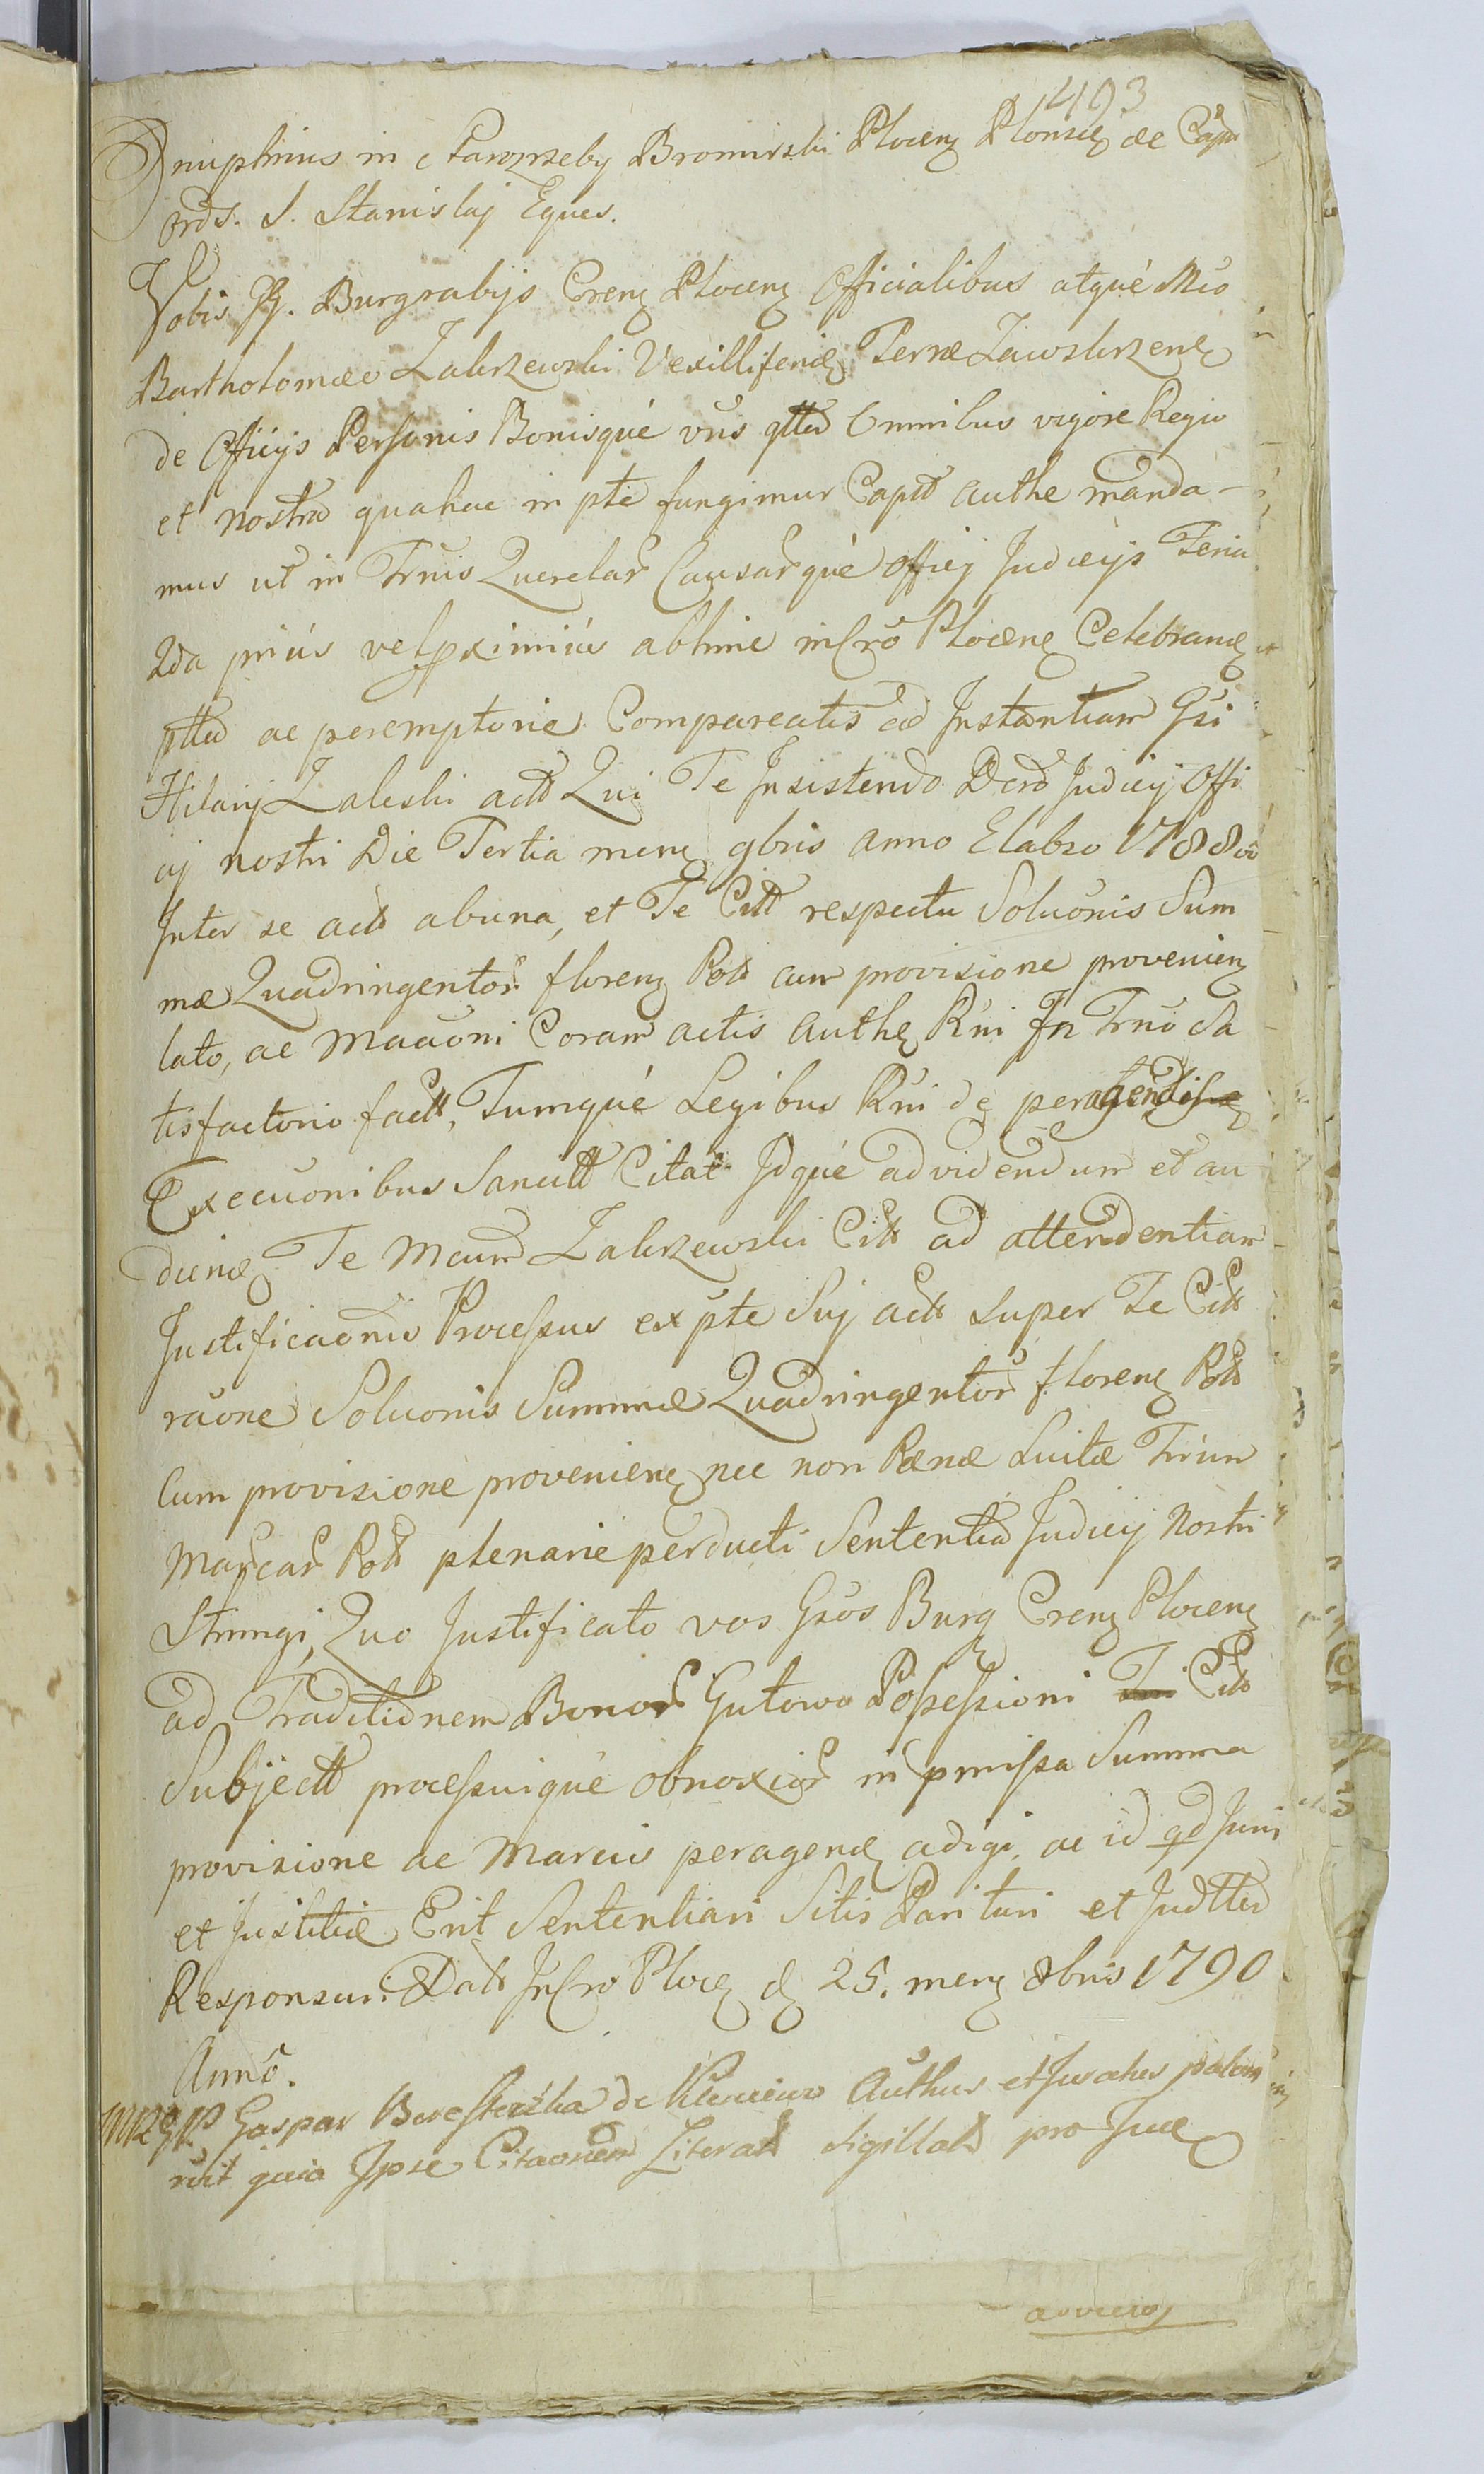 493
Onuphrius in Starozreby Bromirski Plocenȝ Plonscȝ &c Capń
Ord̃s. S. Stanislaj Eques.
Vobis JJ. Burgrabijs Cren̄ȝ Plocenȝ Officialibus atquè Mc̃o
Bartholomæo Zakrzewski Vexilliferiȝ Terræ Zawskrzenȝ
de Officijs Personis Bonisquè vr̃is qttd Omnibus vigore Regio
et nostra quahac in pte fungimur Captt authe manda-
mus ut in Trñis Querelar̃ Causar̃què Officij Judicijs Feria
2da priús vel pximiús abhinc inCrõ Plocenȝ Celebranȝ
pttd ac peremptorie Compareatis ad Instantiam Gsi
Hilarij Zaleski actt Qui Te Insistendo Decrõ Judicij Offi
cij nostri Die Tertia menȝ 9bris anno Elabso 1788vo
Inter se actt abuna, et Te Citt respectu Soluõnis Sum
mæ Quadringentor̃ florenȝ Poll cum provisione provenienȝ
lato, ac Maũoni Coram actis autheȝ Rñi In Trño Sa
tisfactorio factt, Tumquè Legibus Rñi de peragendis
Execuõnibus Sancitt Citat Idquè advidendum et au
dienȝ Te Mcum Zakrzewski Citt ad attendentiam
Justificaõnis Processus ex pte Suj actt super Te Citt
raõne Soluonis Summæ Quadringentor̃ florenȝ Poll
Cum provisione provenienȝ nec non Pænæ Luitæ Trium
Marcar̃ Poll plenarie perducti Sententia Judicij Nostri
Stringi, Quo Justificato vos Gsos Burg Crenȝ Plocenȝ
ad Traditionem Bonor̃ Gutowo Possessioni Citt
Subjectt processuiquè obnoxior̃ in pmissa Summa
provisione ac Marcis peragenȝ adigi, ac id qd Juris
et Justitiæ Erit Sententiari Sitis Parituri et Judttr
Responsuri. Datt InCro Plocȝ dȝ 25. menȝ 8bris 1790
Anno.
MRGP Gaspar de authus et Juratus palam
vit quia Ipse Citaonem Literatt Sigillatt pro